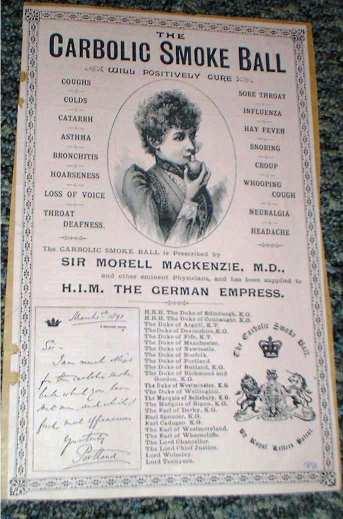 THE
CARBOLIC SMOKE BALL
WILL POSITIVELY CURE
COUGHS
COLDS
CATARRH
ASTHMA
BRONCHITIS
HOARSENESS
LOSS OF VOICE
THROAT
DEAFNESS.
SORE THROAT
INFLUENZA
HAY FEVER
SNORING
CROUP
WHOOPING
COUGH
NEURALGIA
HEADACHE
The CARBOLIC SMOKE BALL is Prescribed by
SIR MORELL MACKENZIE, M.D.,
and other eminent Physicians, and has been supplied to
H.I.M. THE GERMAN EMPRESS.
March 5th 1891
Sir
I am much obliged
for the carbolic smoke
ball which you have
sent me, and which I
find most efficacious
Yours truly
Portland
H.R.H. The Duke of Edinburgh, K.G.
H.R.H. The Duke of Connaught, K.G.
The Duke of Argyll, K.T.
The Duke of Devonshire, K.G.
The Duke of Fife, K.T.
The Duke of Manchester.
The Duke of Newcastle.
The Duke of Norfolk.
The Duke of Portland.
The Duke of Rutland, K.G.
The Duke of Richmond and
Gordon, K.G.
The Duke of Westminster, K.G.
The Duke of Wellington.
The Marquis of Salisbury, K.G.
The Marquis of Ripon, K.G.
The Earl of Derby, K.G.
Earl Spencer, K.G.
Earl Cadogan, K.G.
The Earl of Westmoreland.
The Earl of Wharncliffe.
The Lord Chancellor.
The Lord Chief Justice.
Lord Wolseley.
Lord Tennyson.
The Carbolic Smoke Ball.
By Royal Letters Patent.